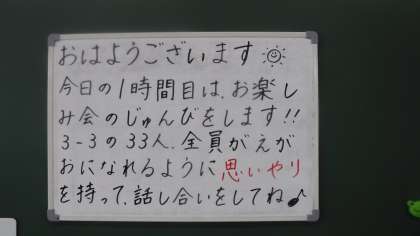 おはようございます
今日の1時間目は、お楽し
み会のじゅんびをします!!
3-3の33人、全員がえが
おになれるように思いやり
を持って、話し合いをしてね♪